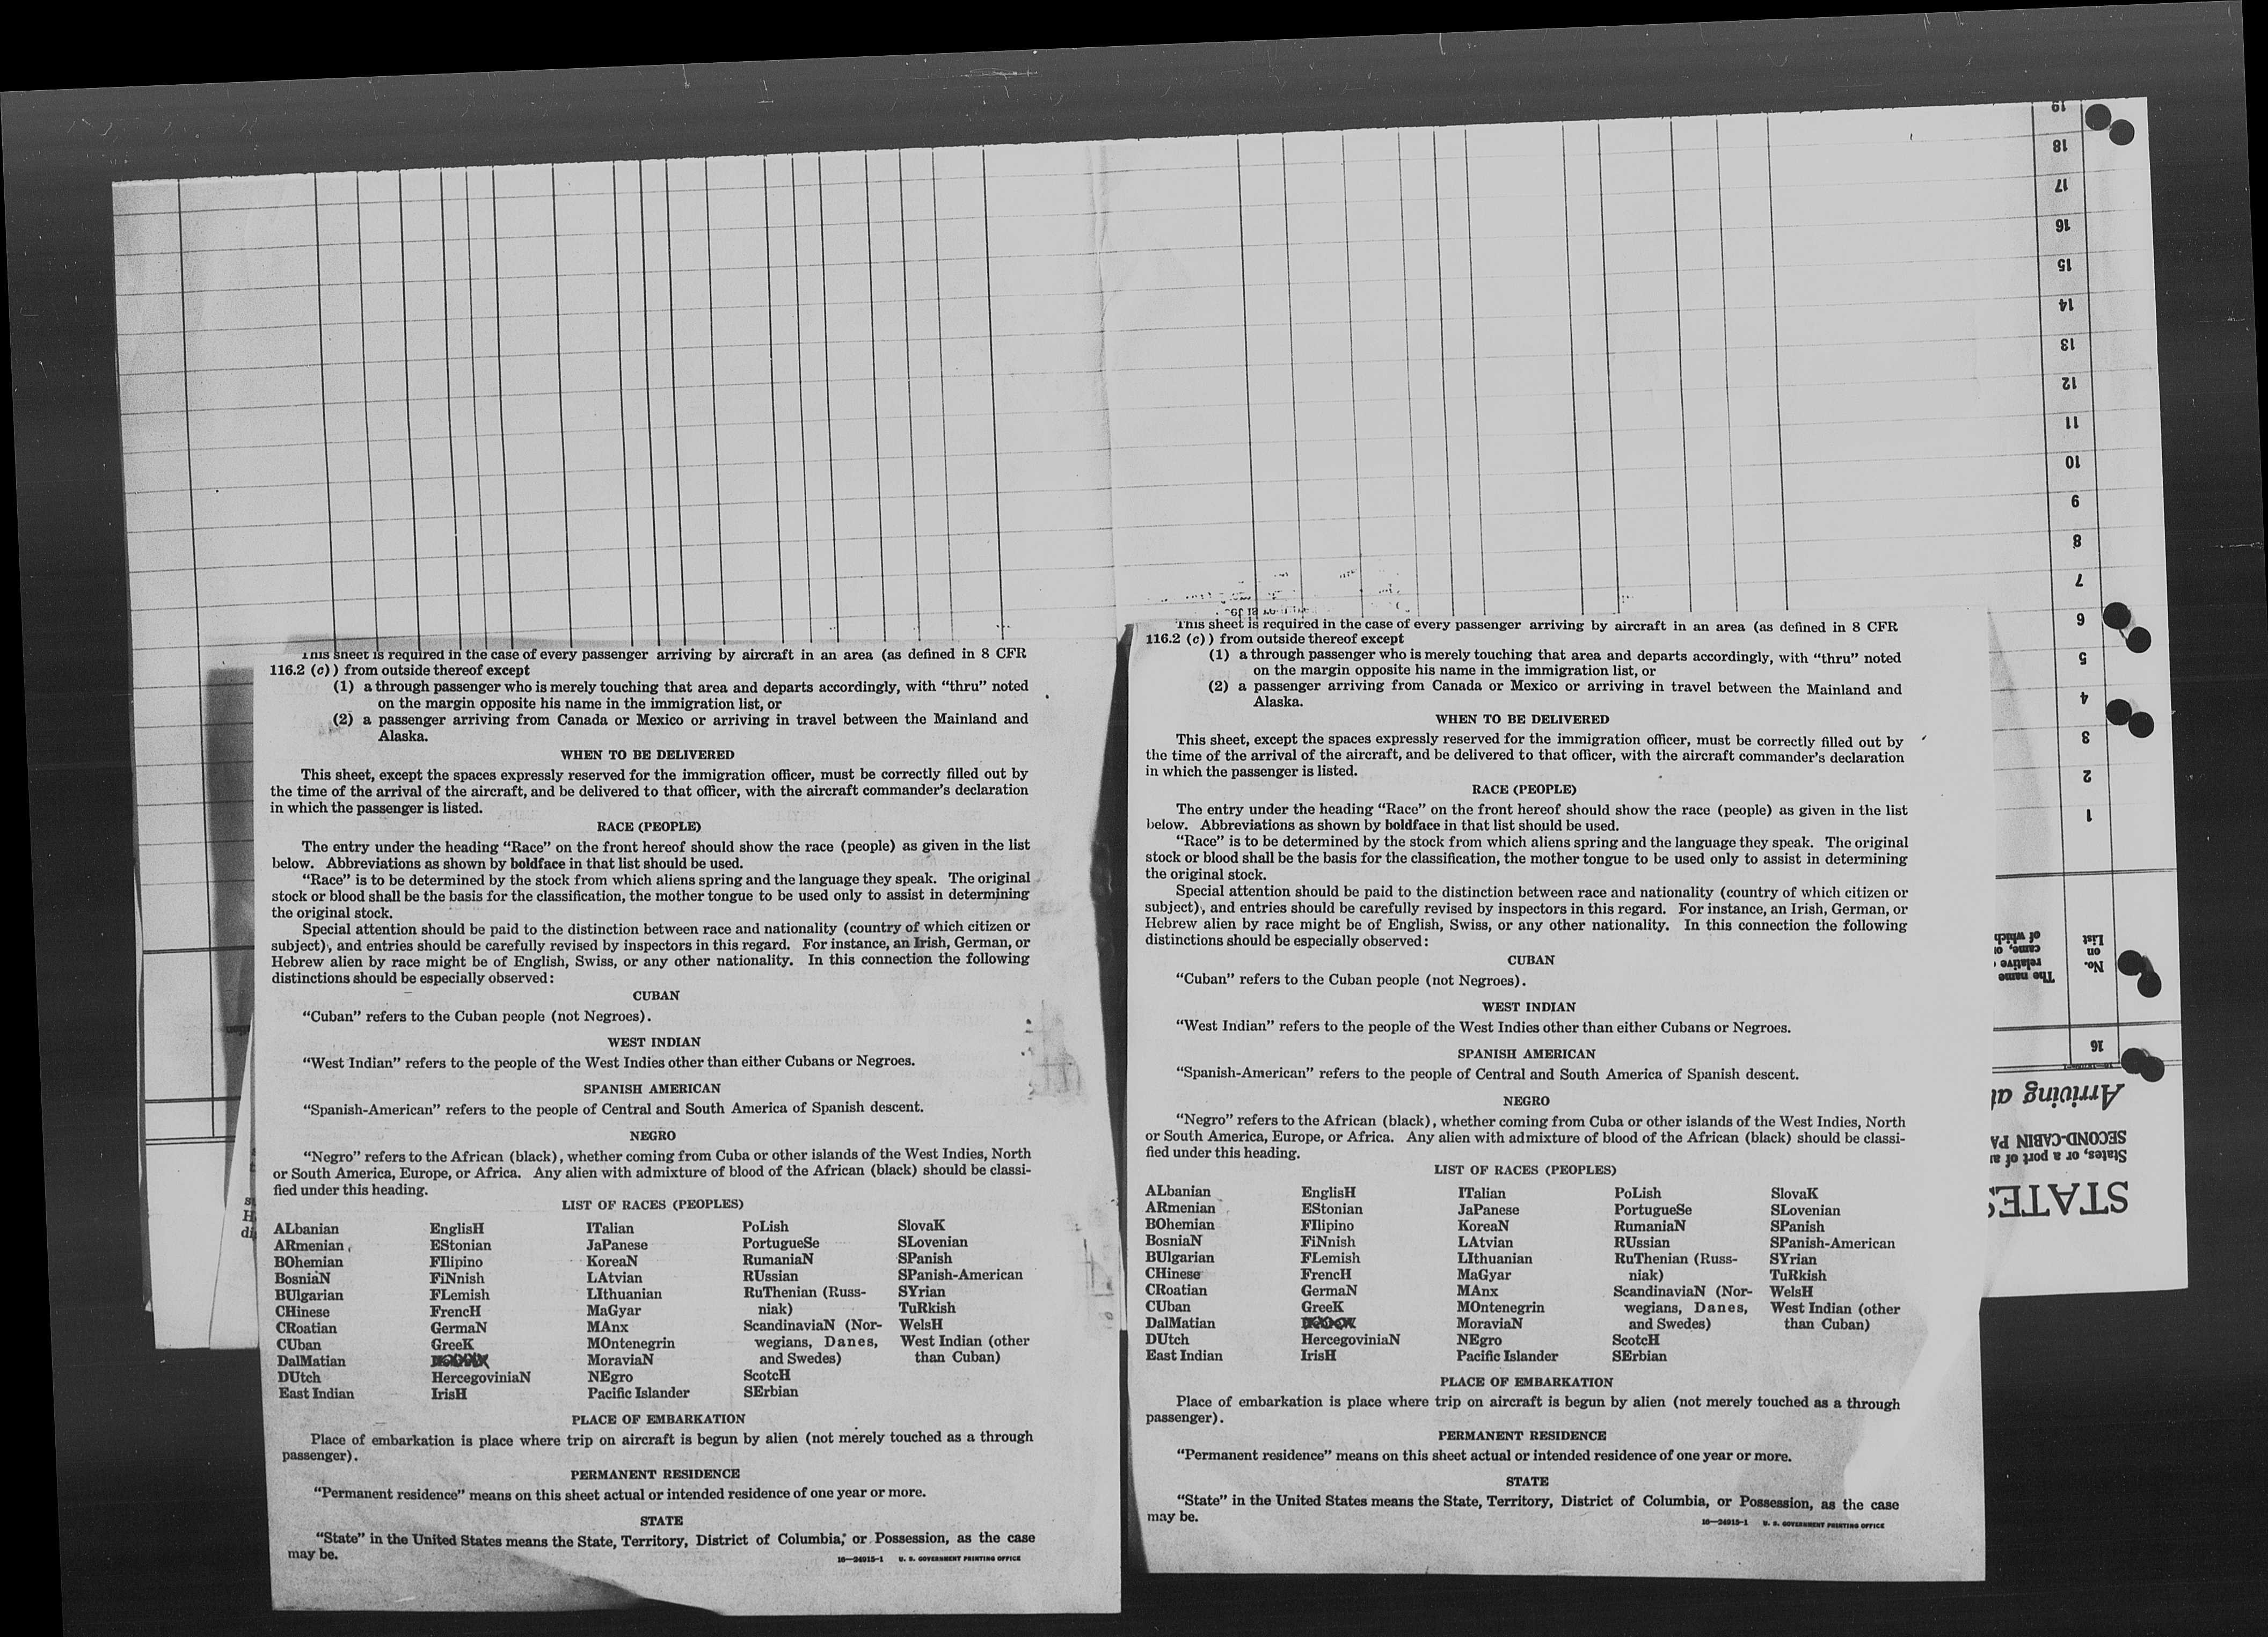 This sheet is required in the case of every passenger arriving by aircraft in an area (as defined in 8 CFR
116.2 (c)) from outside thereof except
(1) a through passenger who is merely touching that area and departs accordingly, with “thru” noted
on the margin opposite his name in the immigration list, or
(2) a passenger arriving from Canada or Mexico or arriving in travel between the Mainland and
Alaska.
WHEN TO BE DELIVERED
This sheet, except the spaces expressly reserved for the immigration officer, must be correctly filled out by
the time of the arrival of the aircraft, and be delivered to that officer, with the aircraft commander’s declaration
in which the passenger is listed.
RACE (PEOPLE)
The entry under the heading “Race” on the front hereof should show the race (people) as given in the list
below. Abbreviations as shown by boldface in that list should be used.
“Race” is to be determined by the stock from which aliens spring and the language they speak. The original
stock or blood shall be the basis for the classification, the mother tongue to be used only to assist in determining
the original stock.
Special attention should be paid to the distinction between race and nationality (country of which citizen or
subject), and entries should be carefully revised by inspectors in this regard. For instance, an Irish, German, or
Hebrew alien by race might be of English, Swiss, or any other nationality. In this connection the following
distinctions should be especially observed:
CUBAN
“Cuban” refers to the Cuban people (not Negroes).
WEST INDIAN
“West Indian” refers to the people of the West Indies other than either Cubans or Negroes.
SPANISH AMERICAN
“Spanish-American” refers to the people of Central and South America of Spanish descent.
NEGRO
“Negro” refers to the African (black), whether coming from Cuba or other islands of the West Indies, North
or South America, Europe, or Africa. Any alien with admixture of blood of the African (black) should be classi-
fied under this heading.
LIST OF RACES (PEOPLES)
ALbanian
ARmenian
BOhemian
BosniaN
BUlgarian
CHinese
CRoatian
CUban
DalMatian
DUtch
East Indian
EnglisH
EStonian
FIlipino
FiNnish
FLemish
FrencH
GermaN
GreeK
HercegoviniaN
IrisH
ITalian
JaPanese
KoreaN
LAtvian
LIthuanian
MaGyar
MAnx
MOntenegrin
MoraviaN
NEgro
Pacific Islander
PoLish
PortugueSe
RumaniaN
RUssian
RuThenian (Russ-
niak)
ScandinaviaN (Nor-
wegians, Danes,
and Swedes)
ScotcH
SErbian
SlovaK
SLovenian
SPanish
SPanish-American
SYrian
TuRkish
WelsH
West Indian (other
than Cuban)
PLACE OF EMBARKATION
Place of embarkation is place where trip on aircraft is begun by alien (not merely touched as a through
passenger).
PERMANENT RESIDENCE
“Permanent residence” means on this sheet actual or intended residence of one year or more.
STATE
“State” in the United States means the State, Territory, District of Columbia, or Possession, as the case
may be.
16—24915-1 U. S. GOVERNMENT PRINTING OFFICE
This sheet is required in the case of every passenger arriving by aircraft in an area (as defined in 8 CFR
116.2 (c)) from outside thereof except
(1) a through passenger who is merely touching that area and departs accordingly, with “thru” noted
on the margin opposite his name in the immigration list, or
(2) a passenger arriving from Canada or Mexico or arriving in travel between the Mainland and
Alaska.
WHEN TO BE DELIVERED
This sheet, except the spaces expressly reserved for the immigration officer, must be correctly filled out by
the time of the arrival of the aircraft, and be delivered to that officer, with the aircraft commander’s declaration
in which the passenger is listed.
RACE (PEOPLE)
The entry under the heading “Race” on the front hereof should show the race (people) as given in the list
below. Abbreviations as shown by boldface in that list should be used.
“Race” is to be determined by the stock from which aliens spring and the language they speak. The original
stock or blood shall be the basis for the classification, the mother tongue to be used only to assist in determining
the original stock.
Special attention should be paid to the distinction between race and nationality (country of which citizen or
subject), and entries should be carefully revised by inspectors in this regard. For instance, an Irish, German, or
Hebrew alien by race might be of English, Swiss, or any other nationality. In this connection the following
distinctions should be especially observed:
CUBAN
“Cuban” refers to the Cuban people (not Negroes).
WEST INDIAN
“West Indian” refers to the people of the West Indies other than either Cubans or Negroes.
SPANISH AMERICAN
“Spanish-American” refers to the people of Central and South America of Spanish descent.
NEGRO
“Negro” refers to the African (black), whether coming from Cuba or other islands of the West Indies, North
or South America, Europe, or Africa. Any alien with admixture of blood of the African (black) should be classi-
fied under this heading.
LIST OF RACES (PEOPLES)
ALbanian
ARmenian
BOhemian
BosniaN
BUlgarian
CHinese
CRoatian
CUban
DalMatian
DUtch
East Indian
EnglisH
EStonian
FIlipino
FiNnish
FLemish
FrencH
GermaN
GreeK
HercegoviniaN
IrisH
ITalian
JaPanese
KoreaN
LAtvian
LIthuanian
MaGyar
MAnx
MOntenegrin
MoraviaN
NEgro
Pacific Islander
PoLish
PortugueSe
RumaniaN
RUssian
RuThenian (Russ-
niak)
ScandinaviaN (Nor-
wegians, Danes,
and Swedes)
ScotcH
SErbian
SlovaK
SLovenian
SPanish
SPanish-American
SYrian
TuRkish
WelsH
West Indian (other
than Cuban)
PLACE OF EMBARKATION
Place of embarkation is place where trip on aircraft is begun by alien (not merely touched as a through
passenger).
PERMANENT RESIDENCE
“Permanent residence” means on this sheet actual or intended residence of one year or more.
STATE
“State” in the United States means the State, Territory, District of Columbia, or Possession, as the case
may be.
16—24915-1 U. S. GOVERNMENT PRINTING OFFICE
STATES
States, or a port of
SECOND-CABIN
Arriving
16
No.
on
List
The name
relative
came,
of which
1
2
3
4
5
6
7
8
9
10
11
12
13
14
15
16
17
18
19